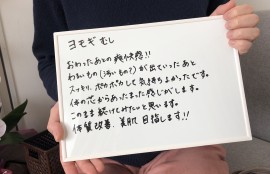 ヨモギむし
おわったあとの爽快感!!
わるいもの(汚いもの?)が出ていったあと
スッキリ、ポカポカして気持ちよかったです。
体の芯からあったまった感じがします。
このまま続けてみたいと思います。
体質改善、美肌 目指します!!